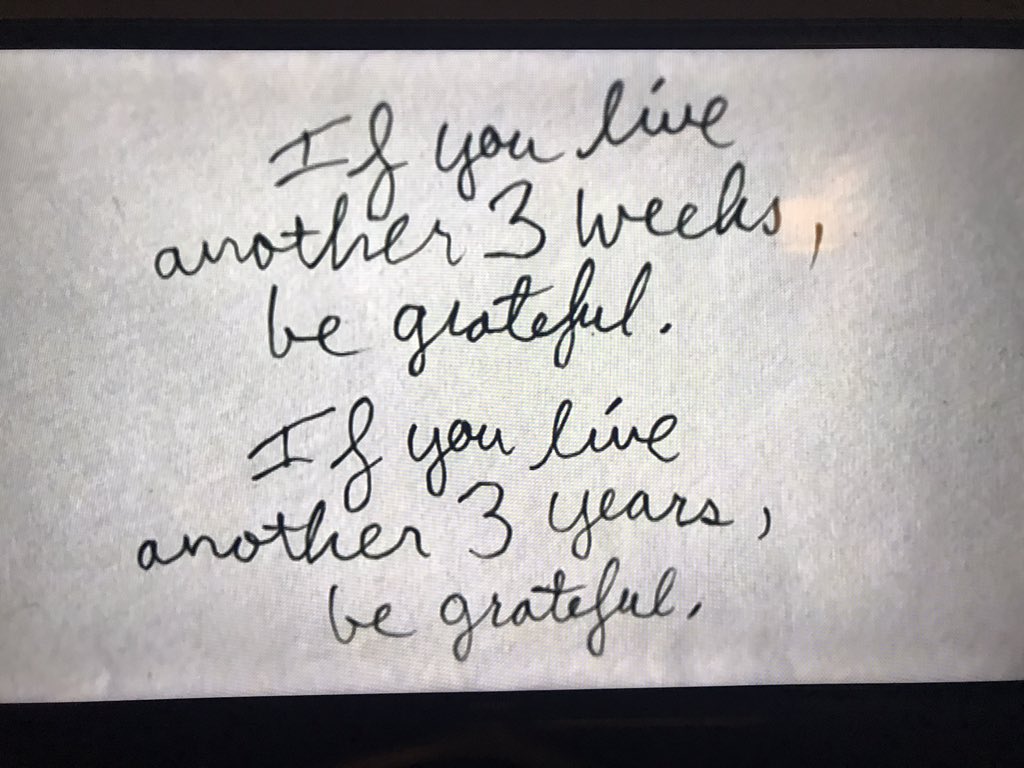 If you live
another 3 weeks,
be grateful.
If you live
another 3 years,
be grateful.